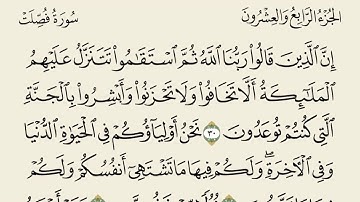 الجزء الرابع والعشرون
سورة فصلت
إِنَّ ٱلَّذِينَ قَالُوا۟ رَبُّنَا ٱللَّهُ ثُمَّ ٱسْتَقَـٰمُوا۟ تَتَنَزَّلُ عَلَيْهِمُ
ٱلْمَلَـٰٓئِكَةُ أَلَّا تَخَافُوا۟ وَلَا تَحْزَنُوا۟ وَأَبْشِرُوا۟ بِٱلْجَنَّةِ
ٱلَّتِى كُنتُمْ تُوعَدُونَ ٣٠ نَحْنُ أَوْلِيَآؤُكُمْ فِى ٱلْحَيَوٰةِ ٱلدُّنْيَا
وَفِى ٱلْـَٔاخِرَةِ ۖ وَلَكُمْ فِيهَا مَا تَشْتَهِىٓ أَنفُسُكُمْ وَلَكُمْ